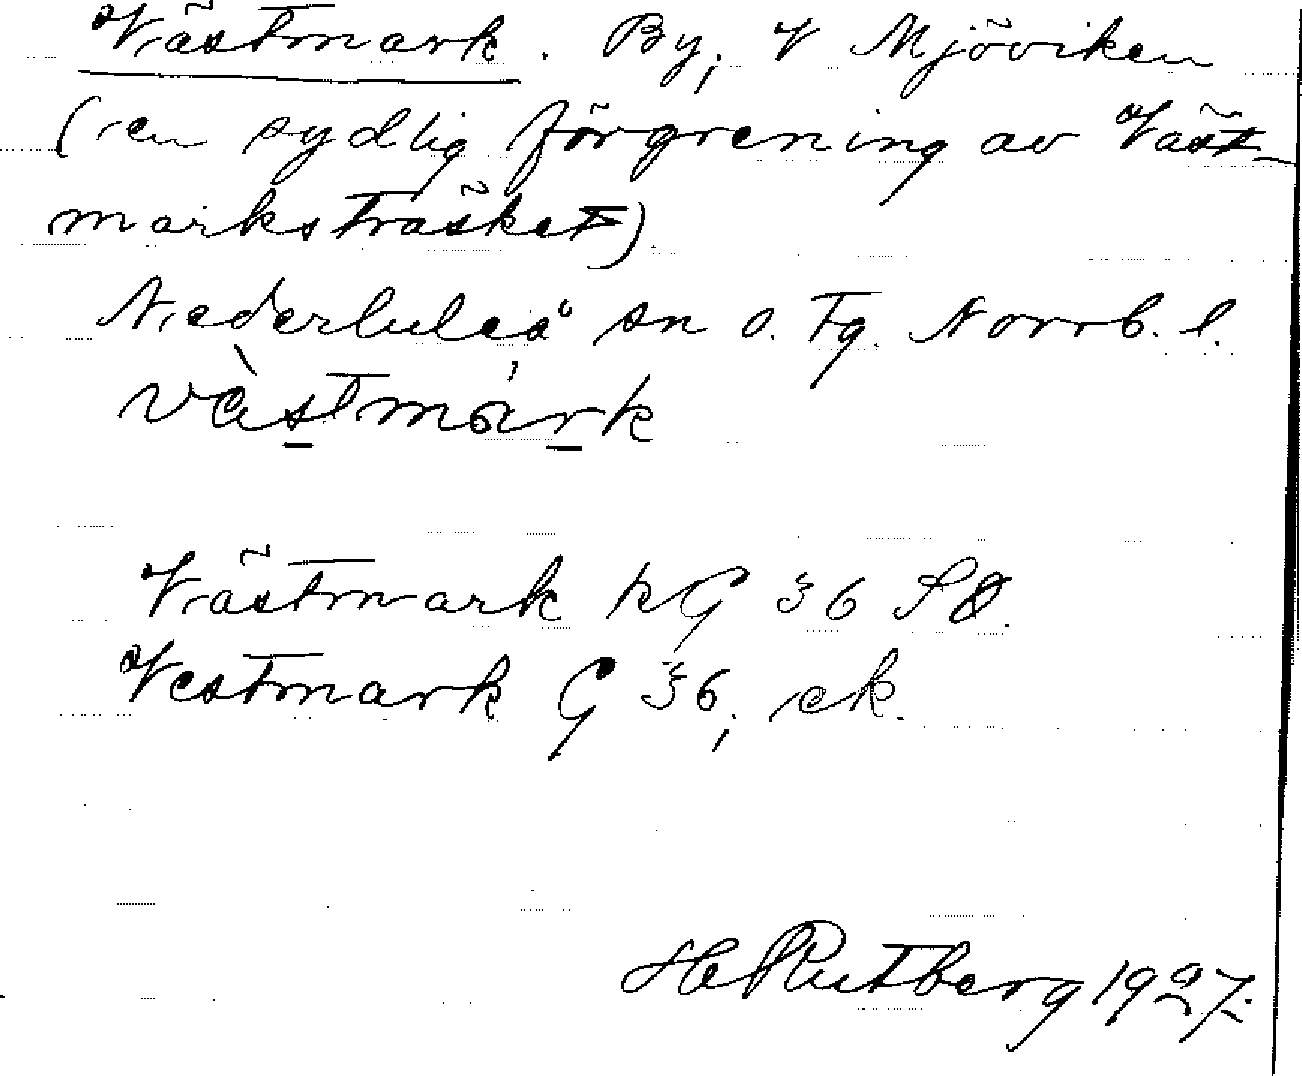 Västmark. By, V Mjöviken
(en sydlig förgrening av Väst-
marksträsket)
Nederluleå sn o. Tg. Norrb. l.
vàstmárk
Västmark kG 36 SO.
Vestmark G 36, ek.
H Rutberg 1927.